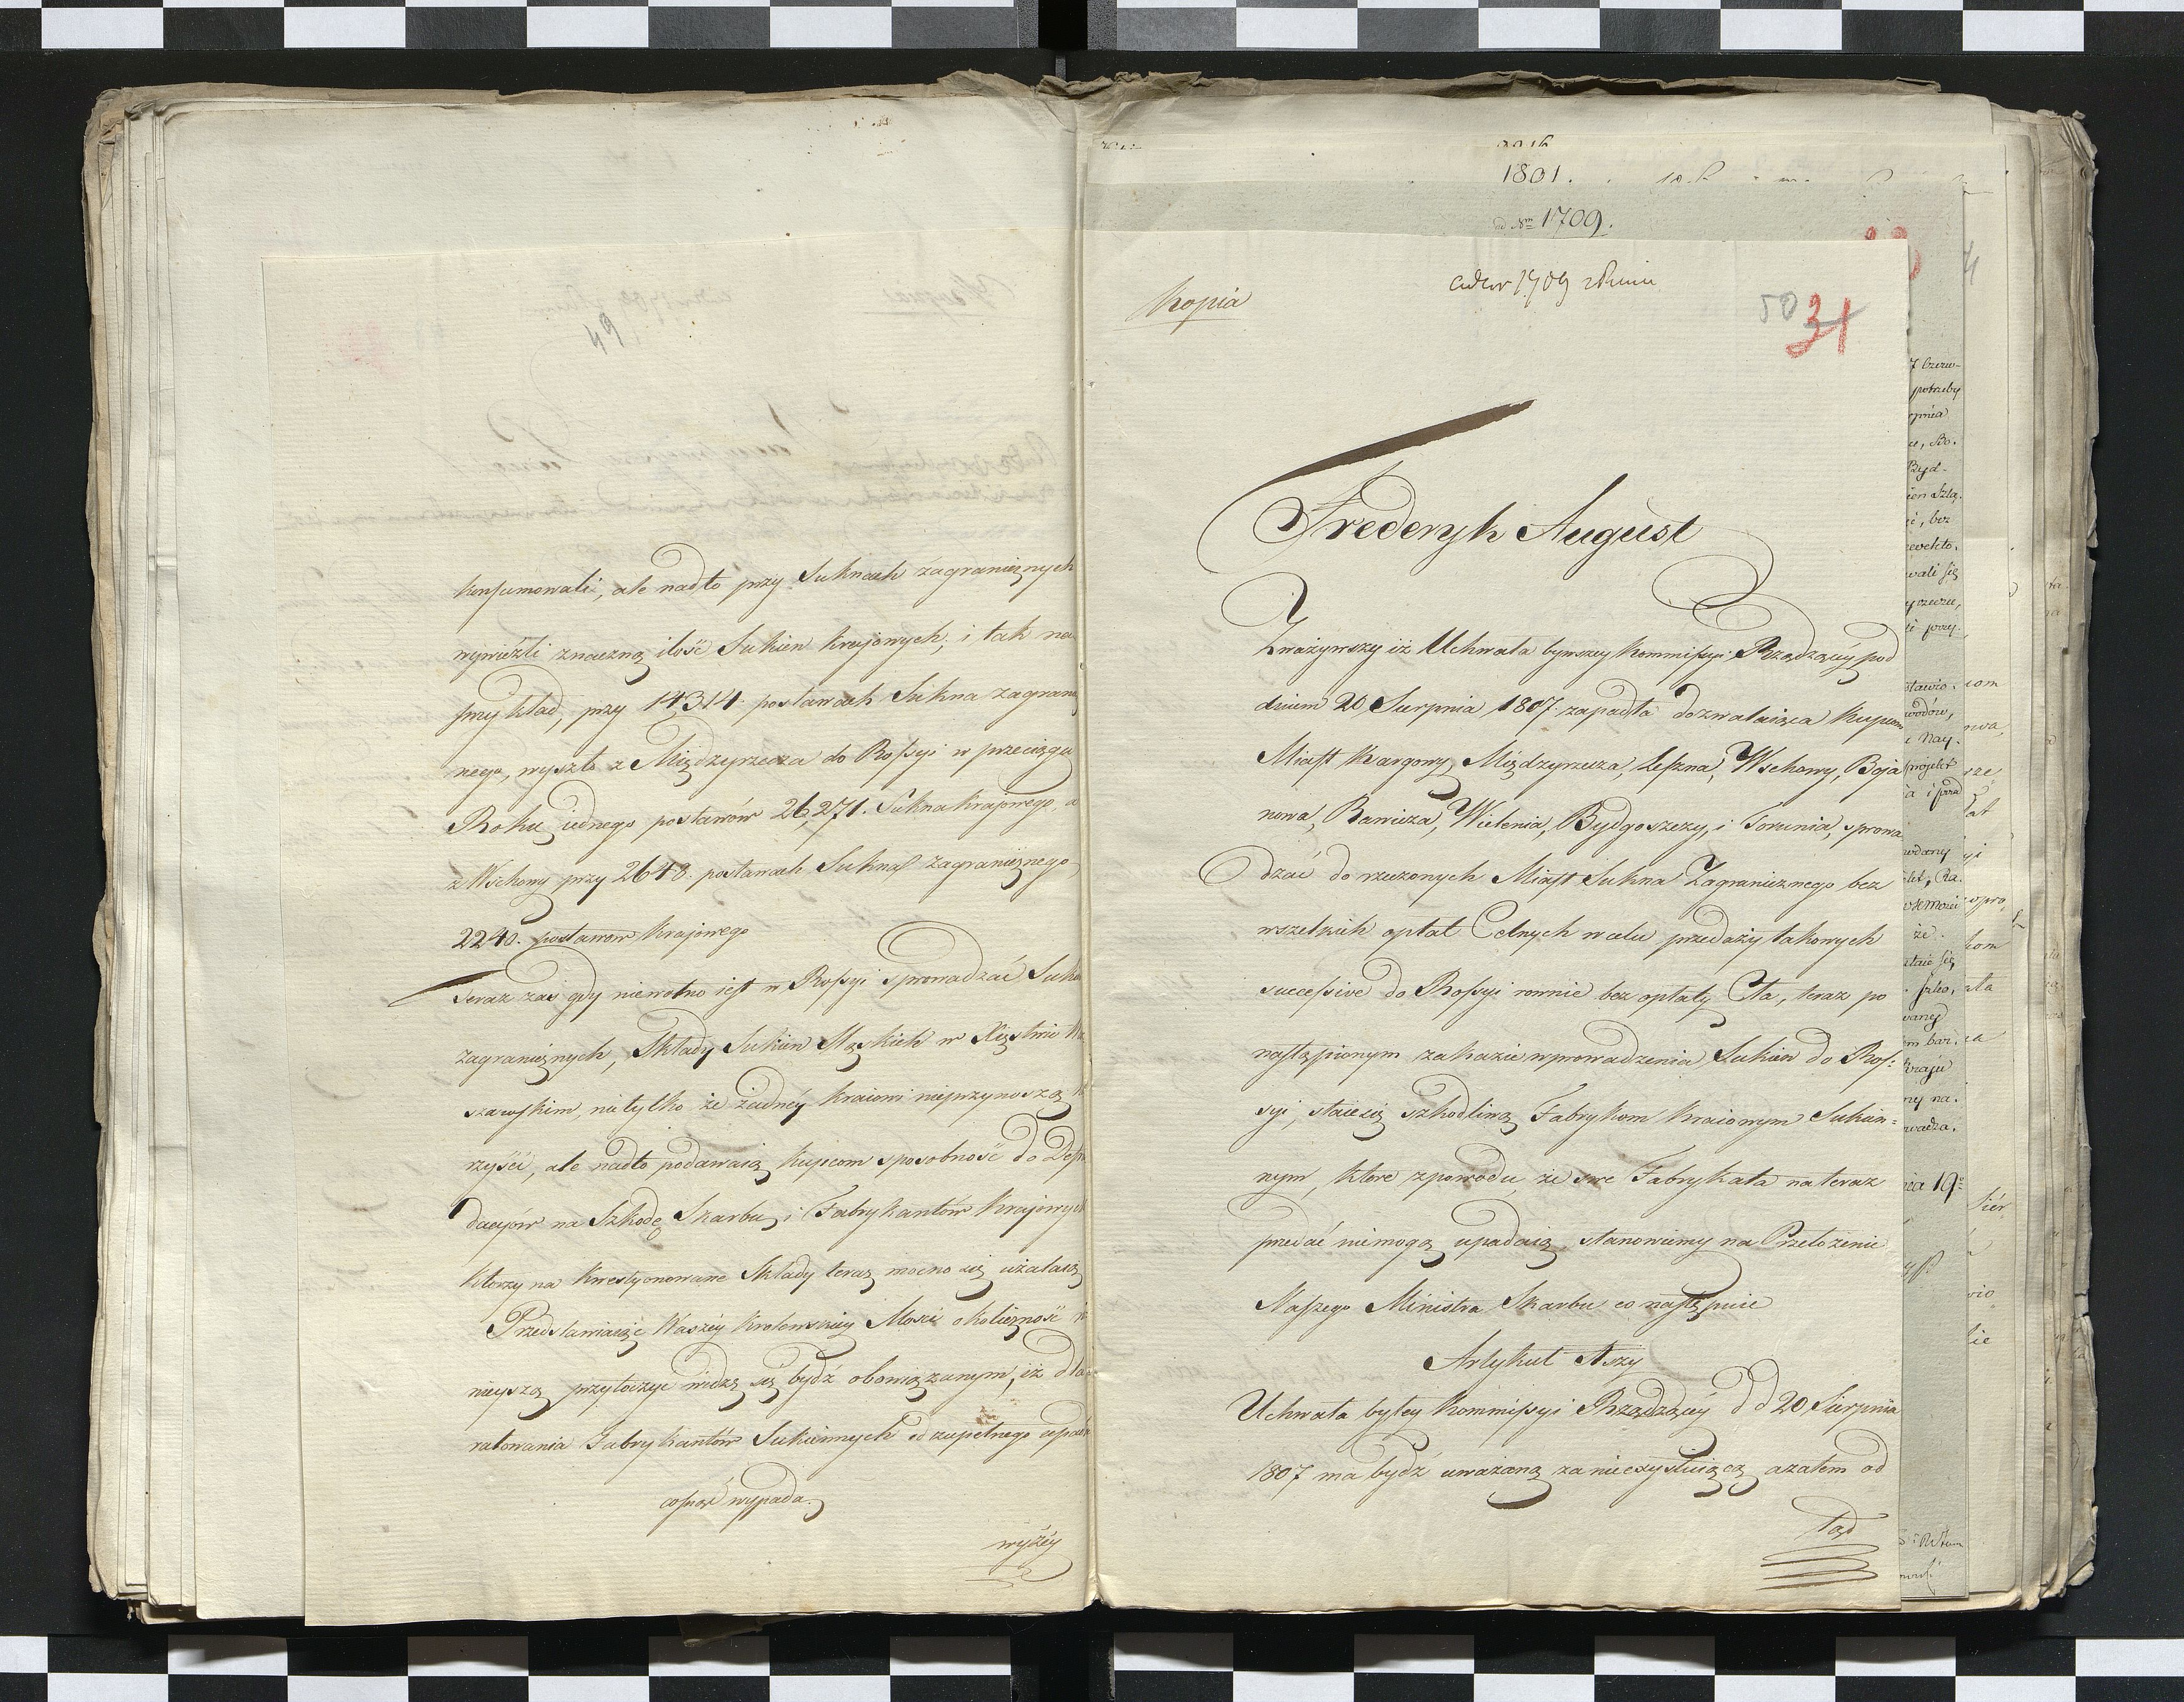 49
konsumowali, ale nadto przy Suknach zagranicznych
wywieźli znaczną ilość Sukien krajowych; i tak na
przykład, przy 14,314. postawach Sukna zagrani
nego, wyszło z Międzyrzecza do Rossyi w przeciągu
Roku jednego postawów 26,271. Sukna krajowego, a
z Wschowy przy 2648. postawach Sukna zagranicznego,
2240. postawow krajowego
Teraz zaś gdy niewolno iest w Rossyi sprowadzać Sukn
zagranicznych, Składy Sukien Sląskich w Xięstwie Wa
szawskim, nietylko że żadnéy kraiowi nieprzynoszą ko
rzyści, ale nadto podawaią kupcom sposobność do Defr
dacyów na Szkodę Skarbu, i Fabrykantów krajowych
którzy na kwestyonowane Składy teraz mocno się użalaią
Przedstawiaiąc Waszéy Krolewskiéy Mości okoliczność ni
nieyszą przytoczyć widzę się bydź obowiązanym, iż dla
ratowania Fabrykantów Sukiennych od zupełnego upad
wypada.
wyżéy
1801.
ad Nm 1709.
Kopia
1709
50 31
Frederyk August
Zważywszy iż Uchwała bywszey Kommissyi Rządzącéy pod
dniem 20 Sierpnia 1807. zapadła dozwalaiąca kupcom
Miast Kargowy, Międzyrzecza, Leszna, Wschowy, Boja
nowa, Rawicza, Wielenia, Bydgoszczy, i Torunia, sprowa
dzać do rzeczonych Miast Sukna Zagranicznego bez
wszelkich opłat Celnych w celu przedaży takowych
successive do Rossyi rownie bez opłaty Cła, teraz po
nastąpionym zakazie wprowadzenia Sukien do Ros:
syi, staie się szkodliwą Fabrykom kraiowym Sukien=
nym, ktore zpowodu, że swe Fabrykata na teraz
przedać niemogą upadaią, stanowiemy na Przełożenie
Naszego Ministra Skarbu co następuie
Artykuł 1szy
Uchwała byłey Kommissyi Rządzącéy d d 20 Sierpnia
1807 ma bydź uważaną za nieexystuiącą, a zatem od
tąd